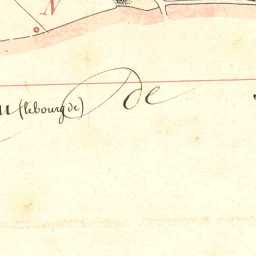 N
(le bourg de)
de